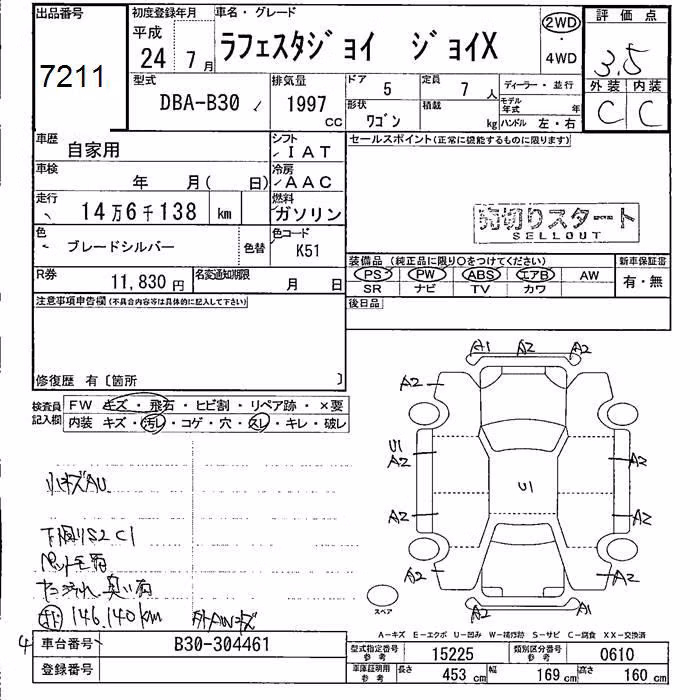 出品番号
7211
初度登録年月
平成
24 7月
車名・グレード
ラフェスタジョイ ジョイX
2WD
4WD
評価点
3.5
外装 内装
C C
型式
DBA-B30
排気量
1997
cc
ドア
5
定員
7 人
形状
ワゴン
積載
kg
ディーラー・並行
モデル年式 年
ハンドル 左・右
車歴
自家用
シフト
IAT
車検
年 月( 日)
冷房
AAC
走行
14万6千138 km
燃料
ガソリン
色
ブレードシルバー
色替
色コード
K51
R券
11,830円
名変通知期限
月 日
セールスポイント(正常に機能するものに限ります)
売切りスタート
SELLOUT
装備品(純正品に限り○をつけてください)
新車保証書
PS PW ABS エアB AW
SR ナビ TV カワ
有・無
後日品
注意事項申告欄(不具合内容等は具体的に記入して下さい)
修復歴 有〔箇所 〕
検査員記入欄
FW キズ・飛石・ヒビ割・リペア跡・×要
内装 キズ・汚レ・コゲ・穴・スレ・キレ・破レ
小キズAU
下廻りS2 C1
ペット毛有
146,140km
外AWキズ
A1 A2 A2
A2
U1
A2 A2
U1
A2 A2
A2 A2
A2 A1
スペア
A-キズ E-エクボ U-凹み W-補修跡 S-サビ C-腐食 XX-交換済
4
車台番号
B30-304461
登録番号
型式指定番号
参考
15225
類別区分番号
参考
0610
車庫証明用
参考
長さ 453 cm
幅 169 cm
高さ 160 cm